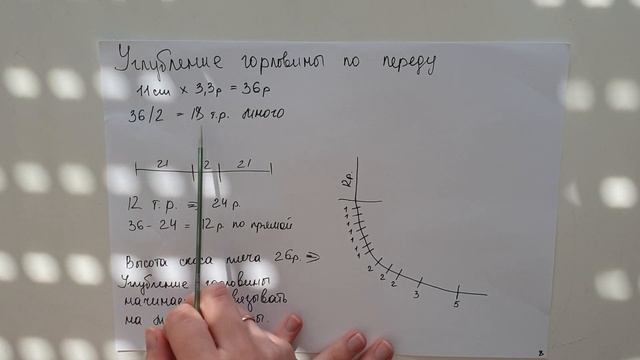 Углубление горловины по переду
11см × 3,3р = 36р
36/2 = 18 т.р. много
21 2 21
12 т.р. = 24р.
36 - 24 = 12р. по прямой
Высота скоса плеча 26р. ⇒
Углубление горловины
начинае вязывать
на
12р.
1
1
1
1
1
1
1
2
2
2
3
5